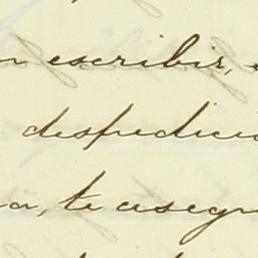 n escribir,
despedici
or, te asegur